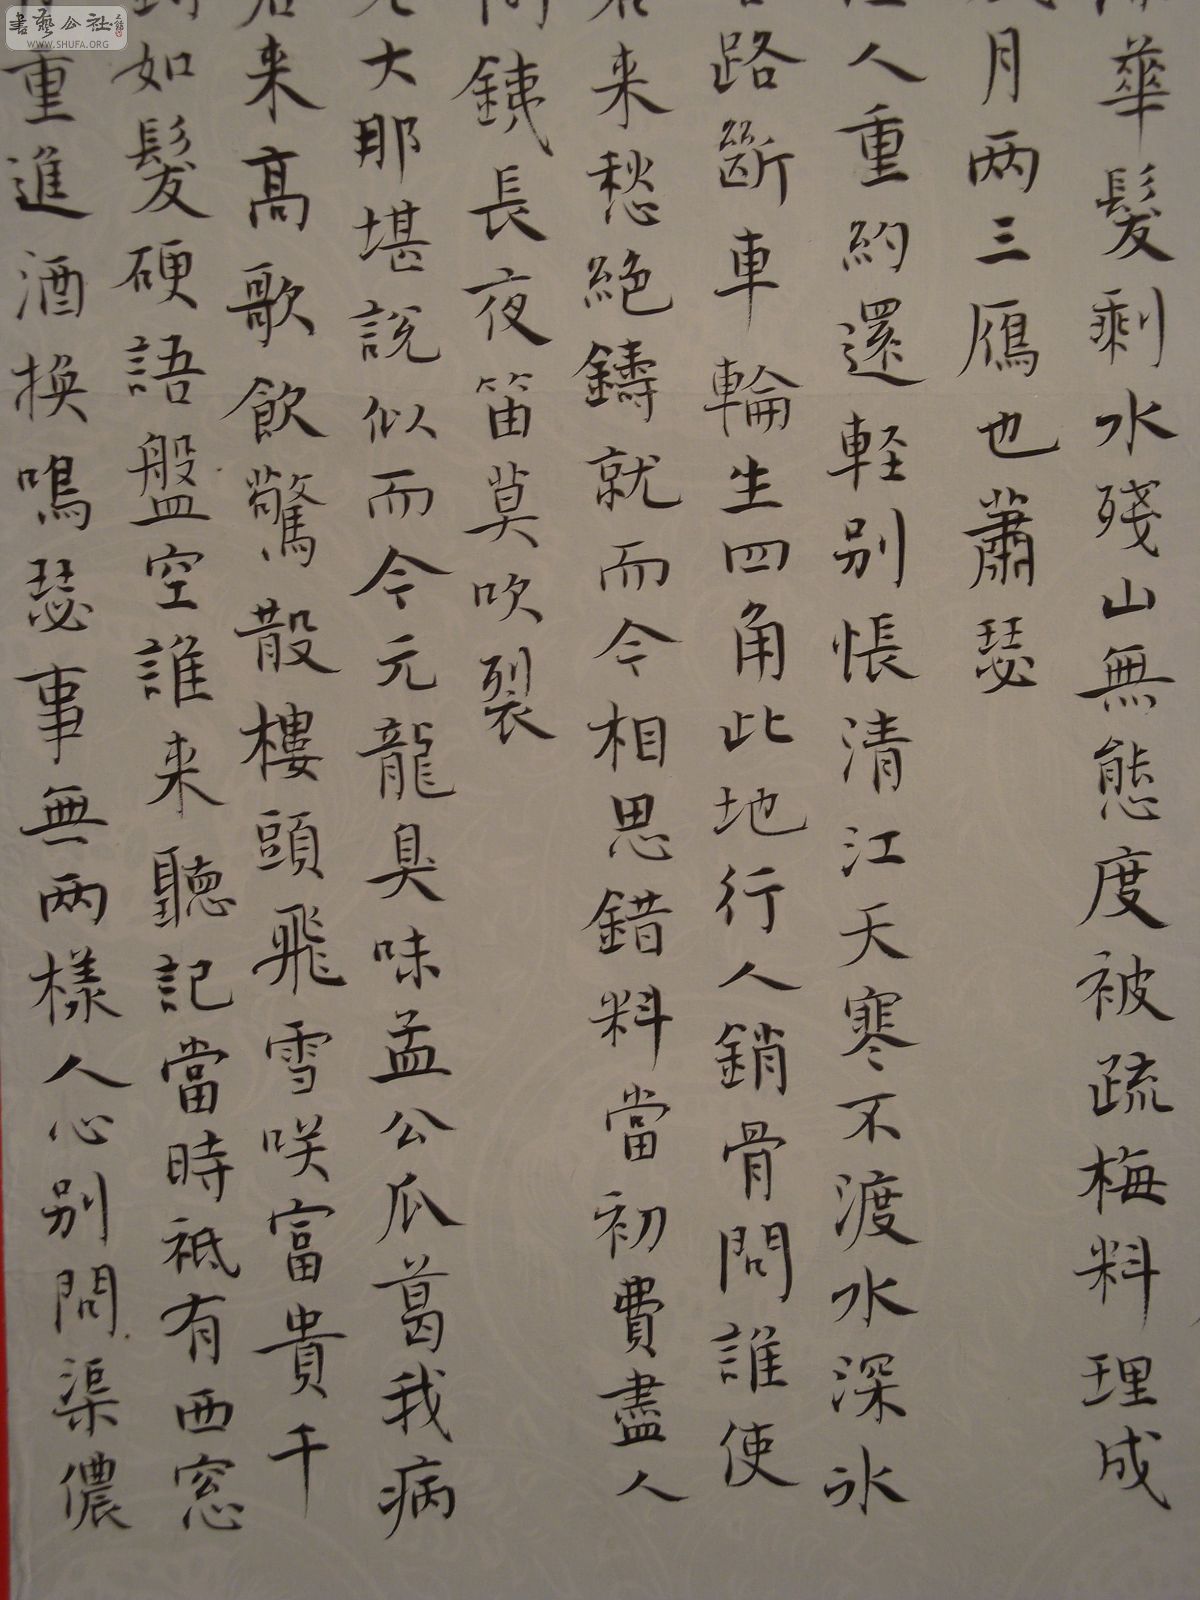 書藝公社
WWW.SHUFA.ORG
華髮剩水殘山無態度被疏梅料理成
月兩三鴈也蕭瑟
人重約還輕別悵清江天寒不渡水深冰
路斷車輪生四角此地行人銷骨問誰使
来愁絕鑄就而今相思錯料當初費盡人
銕長夜笛莫吹裂
大那堪說似而今元龍臭味孟公瓜葛我病
来高歌飲驚散樓頭飛雪咲富貴千
如髮硬語盤空誰来聽記當時祗有西窓
重進酒換鳴瑟事無兩樣人心別問渠儂